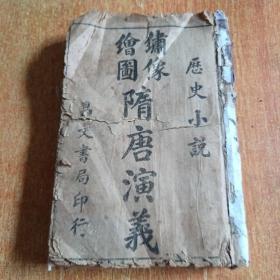 歷史小說
繡像
繪圖
隋唐演義
昌文書局印行